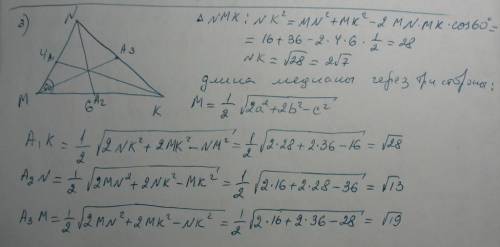 3)
N
△ NMK : NK² = MN² + MK² - 2 MN·MK·cos60° =
= 16 + 36 - 2·4·6·1/2 = 28
NK = √28 = 2√7
4 A₁
A₃
M
6 A₂
K
длина медианы через три стороны:
M = 1/2 √(2a² + 2b² - c²)
A₁K = 1/2 √(2NK² + 2MK² - NM²) = 1/2 √(2·28 + 2·36 - 16) = √28
A₂N = 1/2 √(2MN² + 2NK² - MK²) = 1/2 √(2·16 + 2·28 - 36) = √13
A₃M = 1/2 √(2MN² + 2MK² - NK²) = 1/2 √(2·16 + 2·36 - 28) = √19